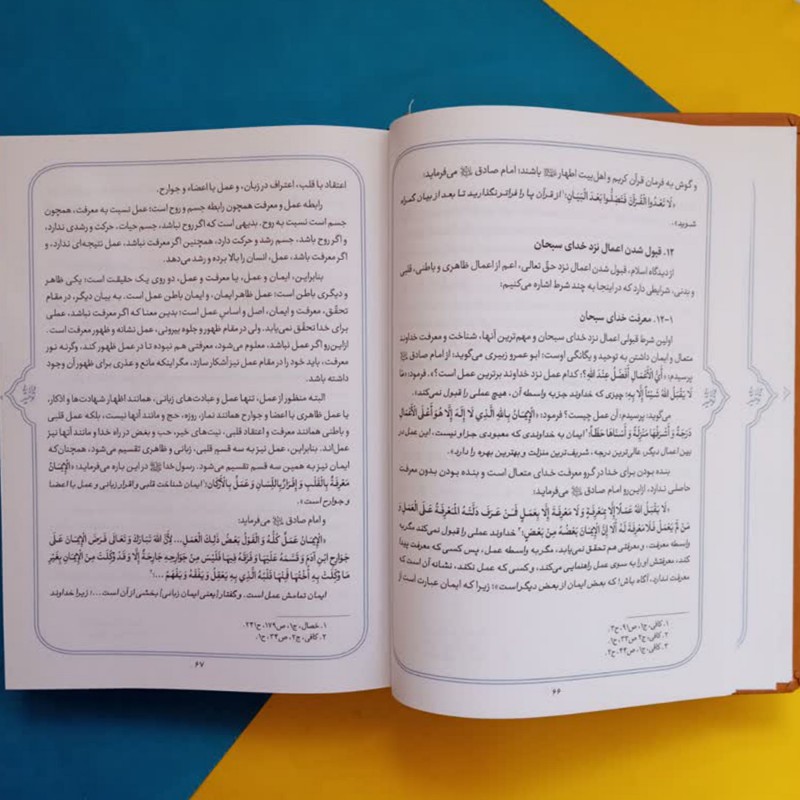 و گوش به فرمان قرآن کریم و اهل‌بیت اطهار باشند؛ امام صادق می‌فرماید:
«لَا تَعْدُوا الْقُرْآنَ فَتَضِلُّوا بَعْدَ الْبَیَانِ؛ از قرآن پا را فراتر نگذارید تا بعد از بیان گمراه
شوید».
۱۲. قبول شدن اعمال نزد خدای سبحان
از دیدگاه اسلام، قبول شدن اعمال نزد حقّ تعالی، اعم از اعمال ظاهری و باطنی، قلبی
و بدنی، شرایطی دارد که در اینجا به چند شرط اشاره می‌کنیم:
۱-۱۲. معرفت خدای سبحان
اولین شرط قبولی اعمال نزد خدای سبحان و مهم‌ترین آنها، شناخت و معرفت خداوند
متعال و ایمان داشتن به توحید و یگانگی اوست؛ ابو عمرو زبیری می‌گوید: از امام صادق
پرسیدم: «أَیُّ الْأَعْمَالِ أَفْضَلُ عِنْدَ اللَّهِ؟؛ کدام عمل نزد خداوند برترین عمل است؟». فرمود: «مَا
لَا یَقْبَلُ اللَّهُ شَیْئاً إِلَّا بِهِ؛ چیزی که خداوند جز به واسطه آن، هیچ عملی را قبول نمی‌کند».
می‌گوید: پرسیدم: آن عمل چیست؟ فرمود: «الْإِیمَانُ بِاللَّهِ الَّذِی لَا إِلَهَ إِلَّا هُوَ أَعْلَی الْأَعْمَالِ
دَرَجَةً وَ أَشْرَفُهَا مَنْزِلَةً وَ أَسْنَاهَا حَظّاً؛ ایمان به خداوندی که معبودی جز او نیست، این عمل در
بین اعمال دیگر، عالی‌ترین درجه، شریف‌ترین منزلت و بهترین بهره را دارد».
بنده بودن برای خدا در گرو معرفت خدای متعال است و بنده بودن بدون معرفت
حاصلی ندارد، ازاین‌رو امام صادق می‌فرماید:
«لَا یَقْبَلُ اللَّهُ عَمَلًا إِلَّا بِمَعْرِفَةٍ وَ لَا مَعْرِفَةَ إِلَّا بِعَمَلٍ فَمَنْ عَرَفَ دَلَّتْهُ الْمَعْرِفَةُ عَلَی الْعَمَلِ وَ
مَنْ لَمْ یَعْمَلْ فَلَا مَعْرِفَةَ لَهُ أَلَا إِنَّ الْإِیمَانَ بَعْضُهُ مِنْ بَعْضٍ؛ خداوند عملی را قبول نمی‌کند مگر به
واسطه معرفت، و معرفتی هم تحقق نمی‌یابد، مگر به واسطه عمل، پس کسی که معرفت پیدا
کند، معرفتش او را به سوی عمل راهنمایی می‌کند، و کسی که عمل نکند، نشانه آن است که
معرفت ندارد. آگاه باش! که بعض ایمان از بعض دیگر است»؛ زیرا که ایمان عبارت است از
۱. کافی، ج۱، ص۹۱، ح۳.
۲. کافی، ج۲ ص۳۳، ح۱.
۳. کافی، ج۱، ص۴۴، ح۲.
۶۶
اعتقاد با قلب، اعتراف در زبان، و عمل با اعضاء و جوارح.
رابطه عمل و معرفت همچون رابطه جسم و روح است؛ عمل نسبت به معرفت، همچون
جسم است نسبت به روح. بدیهی است که اگر روح نباشد، جسم حیات، حرکت و رشدی ندارد،
و اگر روح باشد، جسم رشد و حرکت دارد، همچنین اگر معرفت نباشد، عمل نتیجه‌ای ندارد، و
اگر معرفت باشد، عمل، انسان را بالا برده و رشد می‌دهد.
بنابراین، ایمان و عمل، یا معرفت و عمل، دو روی یک حقیقت است؛ یکی ظاهر
و دیگری باطن است؛ عمل ظاهر ایمان، و ایمان باطن عمل است. به بیان دیگر، در مقام
تحقّق، معرفت و ایمان، اصل و اساسِ عمل است؛ بدین معنا که اگر معرفت نباشد، عملی
برای خدا تحقّق نمی‌یابد. ولی در مقام ظهور و جلوه بیرونی، عمل نشانه و ظهور معرفت است.
ازاین‌رو اگر عمل نباشد، معلوم می‌شود، معرفتی هم نبوده تا در عمل ظهور کند. وگرنه نور
معرفت، باید خود را در مقام عمل نیز آشکار سازد، مگر اینکه مانع و عذری برای ظهور آن وجود
داشته باشد.
البته منظور از عمل، تنها عمل و عبادت‌های زبانی، همانند اظهار شهادت‌ها و اذکار،
یا عمل ظاهری با اعضا و جوارح همانند نماز، روزه، حج و مانند آنها نیست، بلکه عمل قلبی
و باطنی همانند معرفت و اعتقاد قلبی، نیت‌های خیر، حب و بغض در راه خدا و مانند آنها نیز
عمل‌اند. بنابراین، عمل نیز به سه قسمِ قلبی، زبانی و ظاهری تقسیم می‌شود، همچنان‌که
ایمان نیز به همین سه قسم تقسیم می‌شود. رسول خدا در این باره می‌فرماید: «الْإِیمَانُ
مَعْرِفَةٌ بِالْقَلْبِ وَ إِقْرَارٌ بِاللِّسَانِ وَ عَمَلٌ بِالْأَرْکَانِ؛ ایمان شناخت قلبی و اقرار زبانی و عمل با اعضا
و جوارح است».
و امام صادق می‌فرماید:
«الْإِیمَانُ عَمَلٌ کُلُّهُ وَ الْقَوْلُ بَعْضُ ذَلِکَ الْعَمَلِ... لِأَنَّ اللَّهَ تَبَارَکَ وَ تَعَالَی فَرَضَ الْإِیمَانَ عَلَی
جَوَارِحِ ابْنِ آدَمَ وَ قَسَّمَهُ عَلَیْهَا وَ فَرَّقَهُ فِیهَا فَلَیْسَ مِنْ جَوَارِحِهِ جَارِحَةٌ إِلَّا وَ قَدْ وُکِّلَتْ مِنَ الْإِیمَانِ بِغَیْرِ
مَا وُکِّلَتْ بِهِ أُخْتُهَا فَمِنْهَا قَلْبُهُ الَّذِی بِهِ یَعْقِلُ وَ یَفْقَهُ وَ یَفْهَمُ...؛
ایمان تمامش عمل است، و گفتار [یعنی ایمان زبانی] بخشی از آن است...؛ زیرا خداوند
۱. خصال، ج۱، ص۱۷۹، ح۲۴۱.
۲. کافی، ج۲، ص۳۴، ح۱.
۶۷